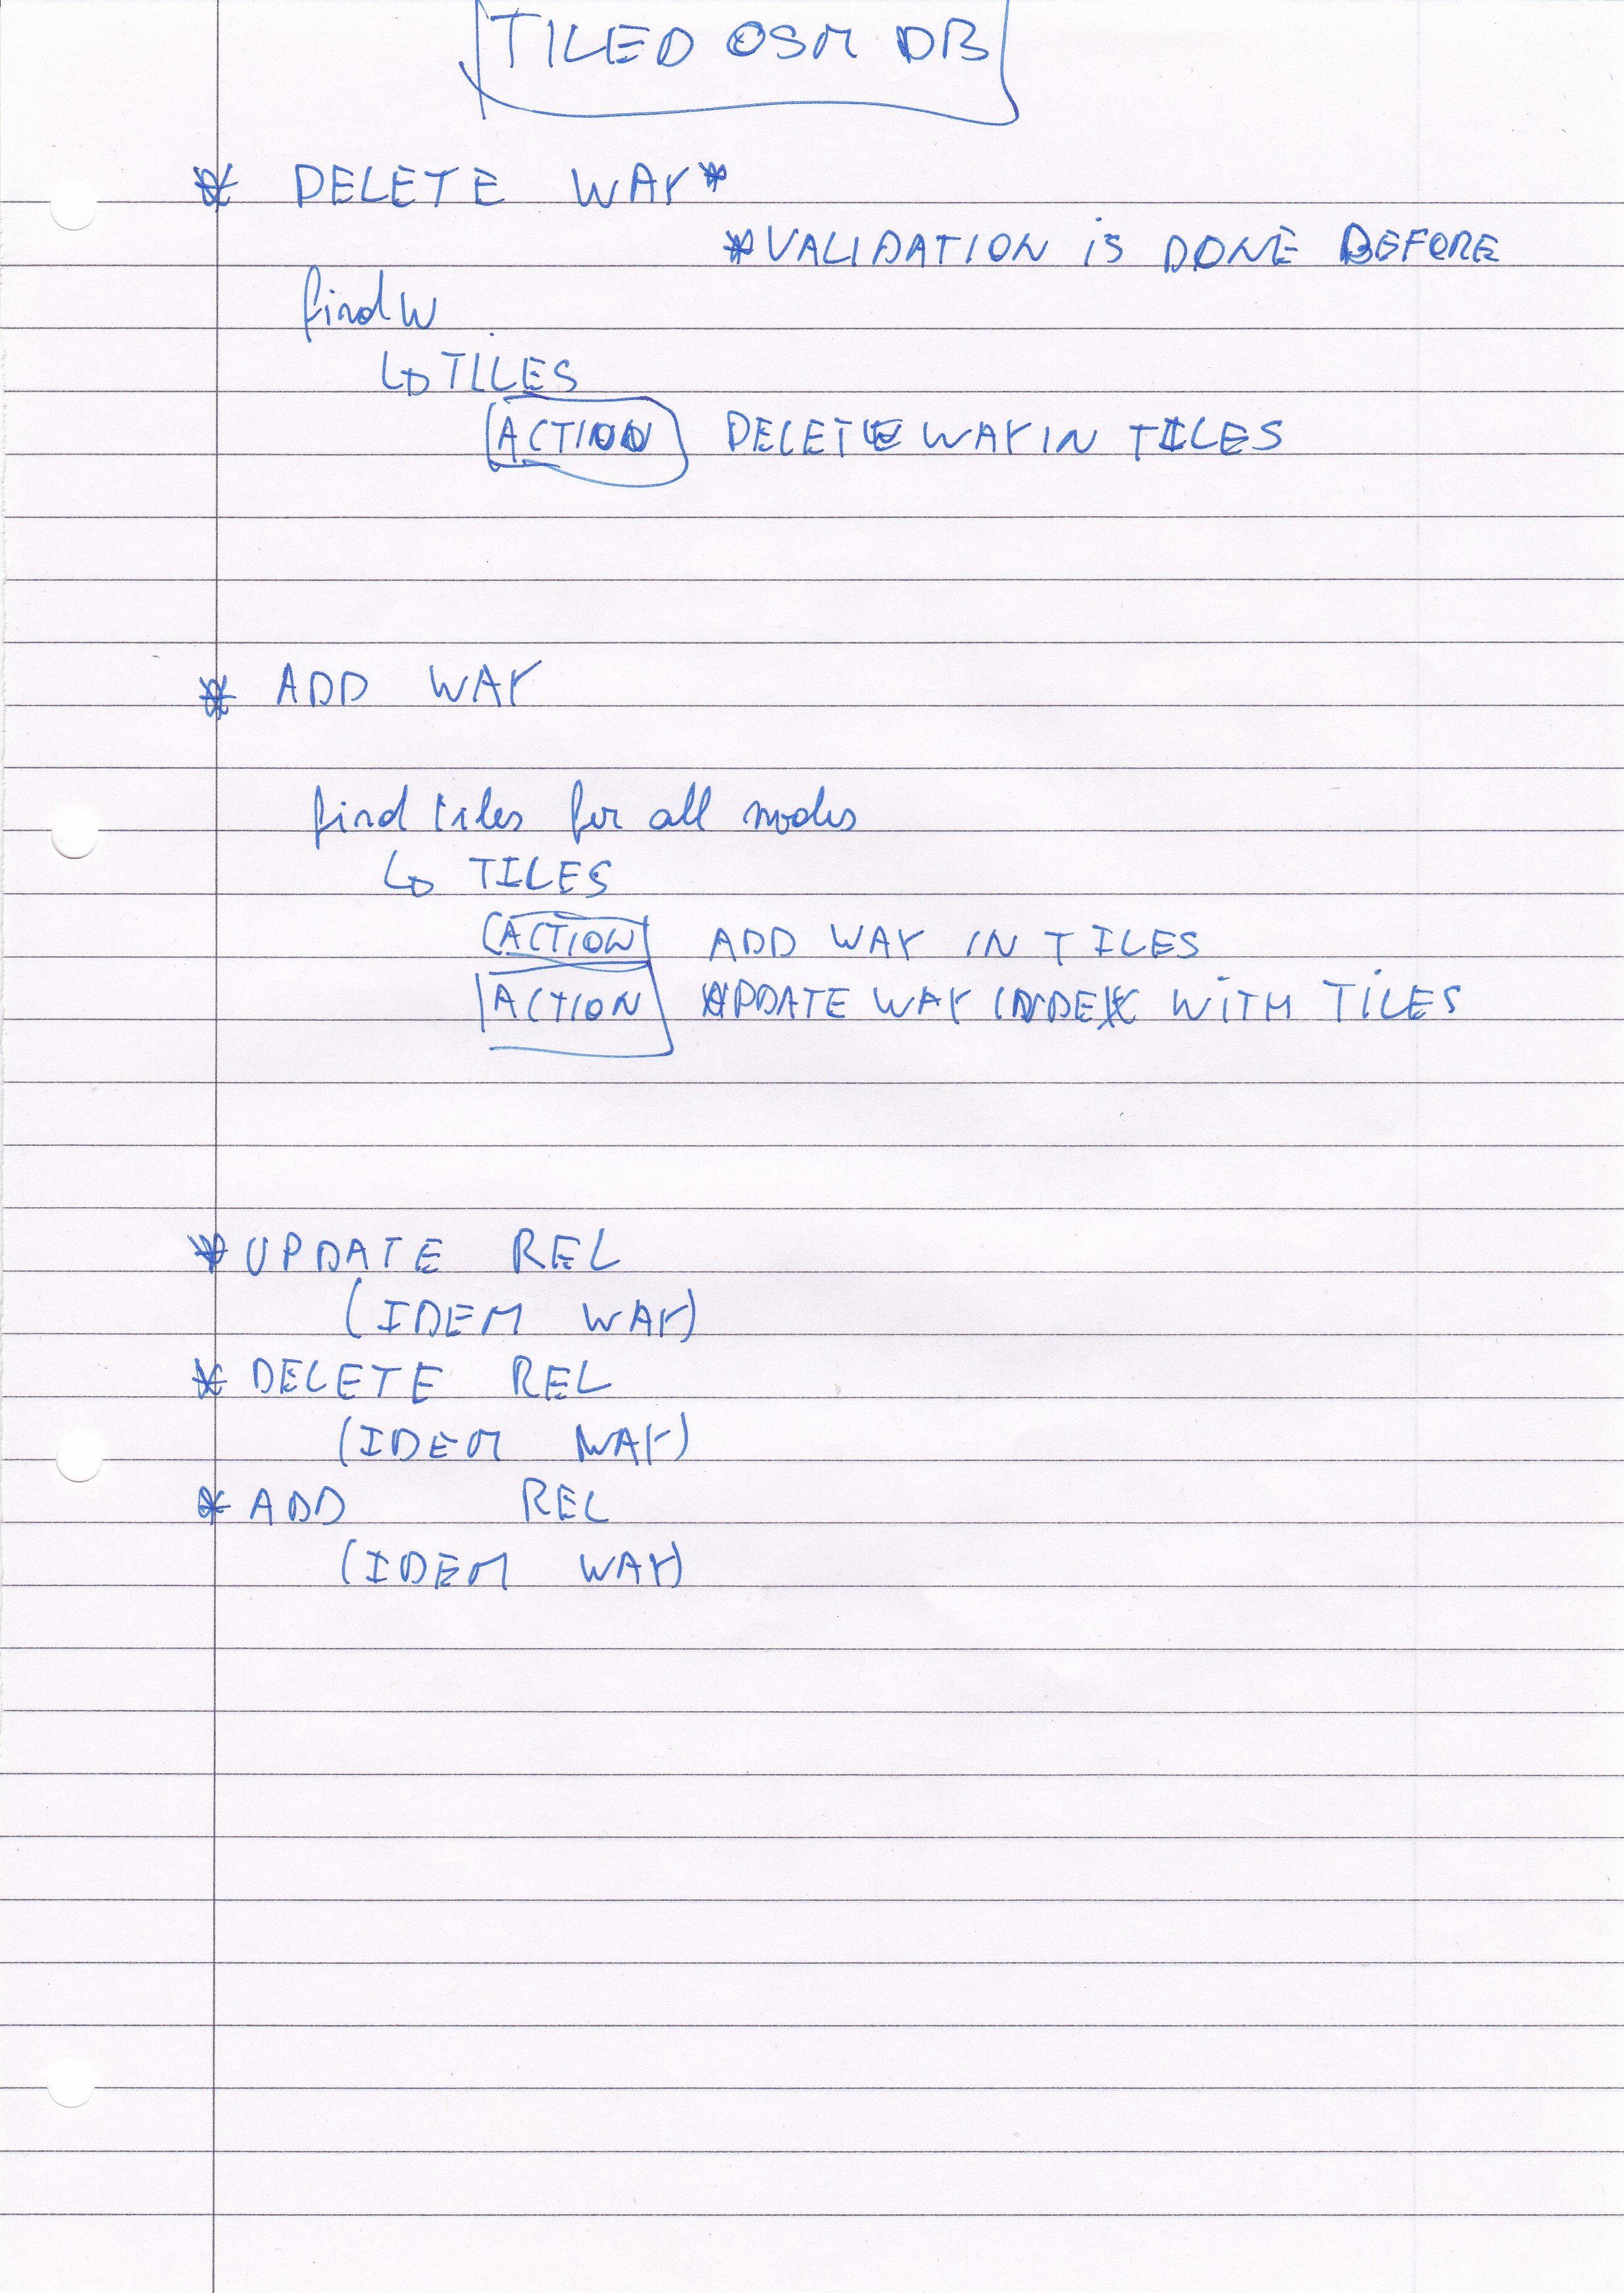 TILED OSM DB
* DELETE WAY*
*VALIDATION iS DONE BEFORE
find W
↳ TILES
ACTION DELETE WAY IN TILES
* ADD WAY
find tiles for all nodes
↳ TILES
ACTION ADD WAY IN TILES
ACTION UPDATE WAY INDEX WiTH TILES
* UPDATE REL
(IDEM WAY)
* DELETE REL
(IDEM WAY)
* ADD REL
(IDEM WAY)